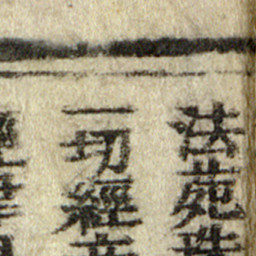 法苑珠
一切經音